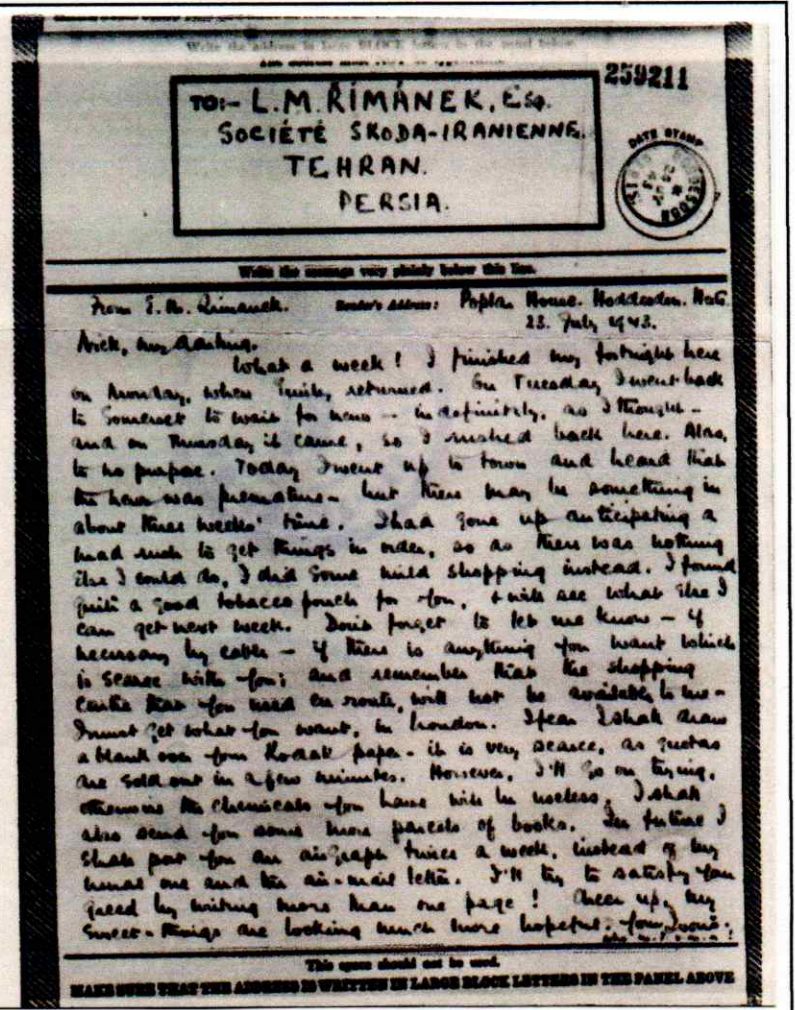 Write the address in large BLOCK letters in the panel below.
259211
TO:- L.M. ŘÍMÁNEK, Esq.
SOCIÉTÉ SKODA-IRANIENNE.
TEHRAN.
PERSIA.
DATE STAMP
Write the message very plainly below this line.
From Sender's Address: Poplar House. Hoddesdon. Herts.
23. July 1943.
my darling.
What a week! I finished my fortnight here
on Monday, when Emily returned. On Tuesday I went back
to Somerset to wait for news - indefinitely, as I thought -
and on Thursday it came, so I rushed back here. Alas,
to no purpose. Today I went up to town and heard that
the news was premature - but there may be something in
about three weeks' time. I had gone up anticipating a
mad rush to get things in order, so as there was nothing
else I could do, I did some mild shopping instead. I found
quite a good tobacco pouch for you, & will see what else I
can get next week. Don't forget to let me know - if
necessary by cable - if there is anything you want which
is scarce with you; and remember that the shopping
centre that you used en route, will not be available to me -
I must get what you want, in London. I fear I shall draw
a blank over your Kodak paper - it is very scarce, as quotas
are sold out in a few minutes. However, I'll go on trying,
otherwise the chemicals you have will be useless. I shall
also send you some more parcels of books. In future I
shall post you an airgraph twice a week, instead of my
usual one and the air-mail letter. I'll try to satisfy your
greed by writing more than one page! Cheer up, my
sweet - things are looking much more hopeful.
This space should not be used.
MAKE SURE THAT THE ADDRESS IS WRITTEN IN LARGE BLOCK LETTERS IN THE PANEL ABOVE